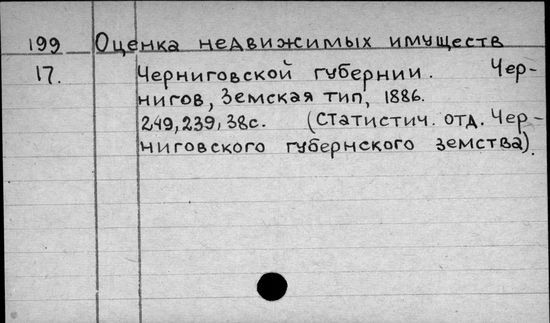 199 Оценка недвижимых имуществ
17. Черниговской губернии. Чер-
нигов, Земская тип, 1886.
249, 239, 38с. (Статистич. отд. Чер-
ниговского губернского земства).